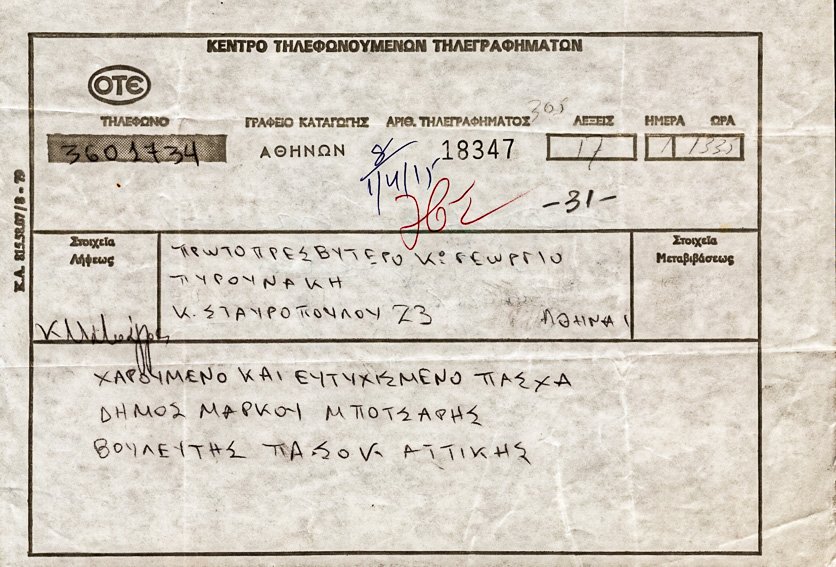 ΚΕΝΤΡΟ ΤΗΛΕΦΩΝΟΥΜΕΝΩΝ ΤΗΛΕΓΡΑΦΗΜΑΤΩΝ
ΟΤΕ
ΤΗΛΕΦΩΝΟ ΓΡΑΦΕΙΟ ΚΑΤΑΓΩΓΗΣ ΑΡΙΘ. ΤΗΛΕΓΡΑΦΗΜΑΤΟΣ 305 ΛΕΞΕΙΣ ΗΜΕΡΑ ΩΡΑ
3601734 ΑΘΗΝΩΝ 18347 17 1 1335
1/4/15
-31-
Κ.Α. 815.58.07/8 - 79
Στοιχεία Λήψεως
ΠΡΩΤΟΠΡΕΣΒΥΤΕΡΟ Κο ΓΕΩΡΓΙΟ
ΠΥΡΟΥΝΑΚΗ
Κ. ΣΤΑΥΡΟΠΟΥΛΟΥ 23 ΑΘΗΝΑΙ
Στοιχεία Μεταβιβάσεως
ΧΑΡΟΥΜΕΝΟ ΚΑΙ ΕΥΤΥΧΙΣΜΕΝΟ ΠΑΣΧΑ
ΔΗΜΟΣ ΜΑΡΚΟΥ ΜΠΟΤΣΑΡΗΣ
ΒΟΥΛΕΥΤΗΣ ΠΑ.ΣΟ.Κ. ΑΤΤΙΚΗΣ